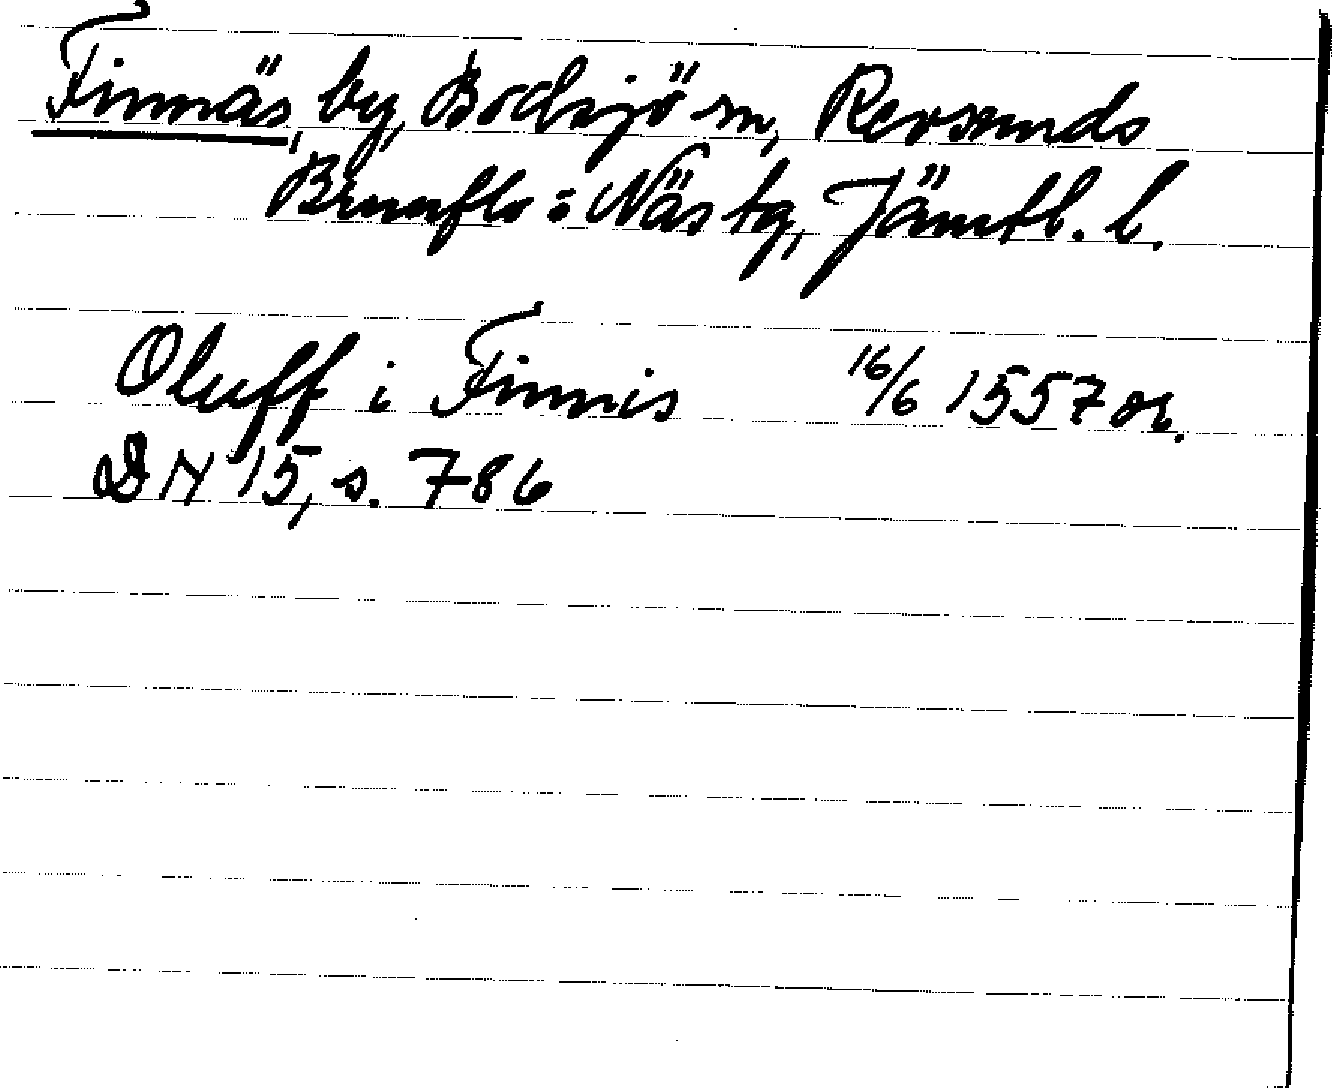 Finnäs, by, Bodsjö sn, Revsunds
Brunflo = Näs tg, Jämtl. l.
Oluff i Finnis 16/6 1557 or.
DN 15, s. 786